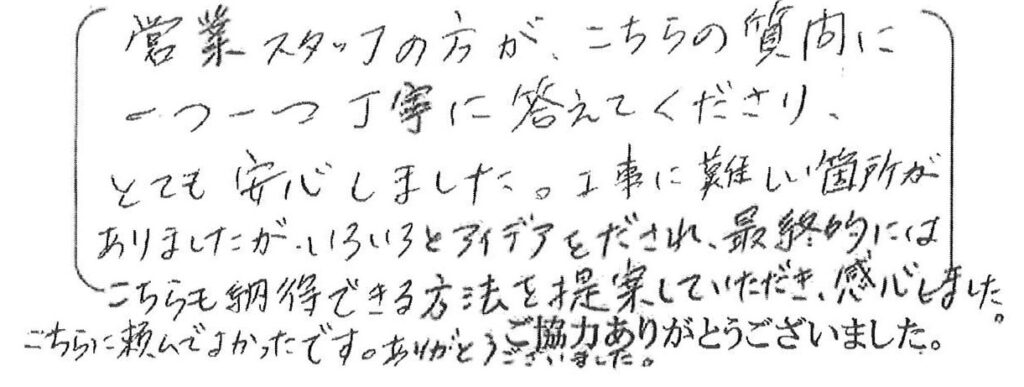 営業スタッフの方が、こちらの質問に
一つ一つ丁寧に答えてくださり、
とても安心しました。工事に難しい箇所が
ありましたが、いろいろとアイデアをだされ、最終的には
こちらも納得できる方法を提案していただき、感心しました。
こちらに頼んでよかったです。ありがとうございました。
ご協力ありがとうございました。